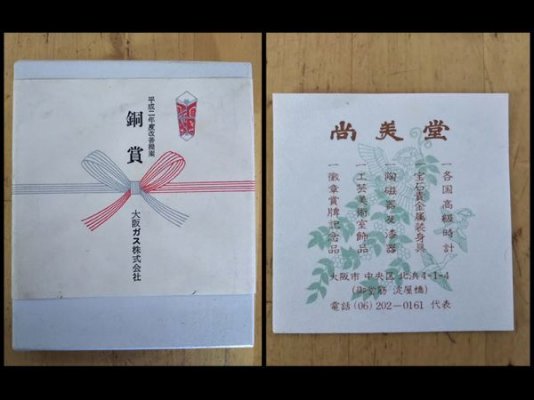 平成二年度改善提案
銅賞
大阪ガス株式会社
尚美堂
一各国高級時計
一宝石貴金属装身具
一陶磁器及漆器
一工芸美術室飾品
一徽章賞牌記念品
大阪市 中央区 北浜4-1-4
(御堂筋 淀屋橋)
電話(06)202-0161 代表